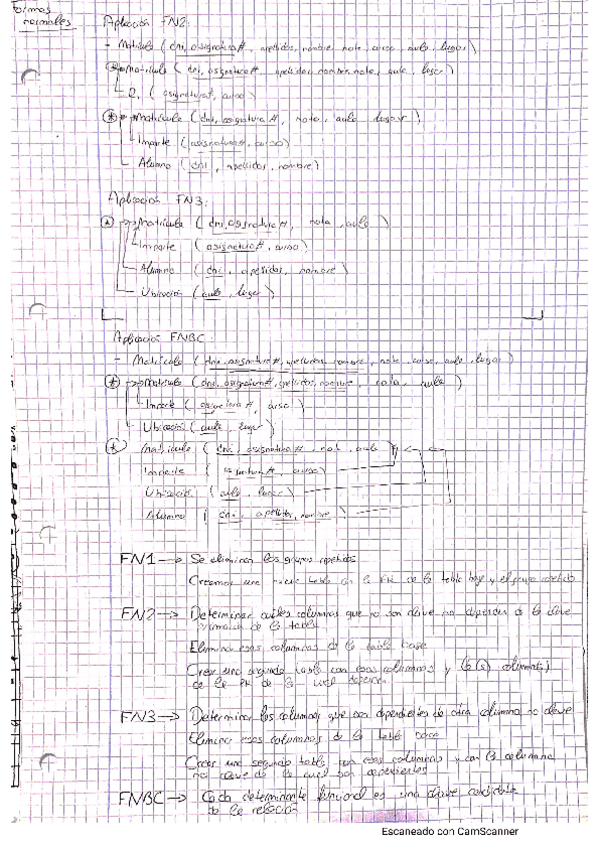 Formas
normales
Aplicación FN2:
- Matricula (dni, asignatura#, apellidos, nombre, nota, curso, aula, lugar)
Matricula (dni, asignatura#, apellidos, nombre, nota, aula, lugar)
(asignatura#, curso)
Matricula (dni, asignatura#, nota, aula, lugar)
Imparte (asignatura#, curso)
Alumno (dni, apellidos, nombre)
Aplicación FN3:
Matricula (dni, asignatura#, nota, aula)
Imparte (asignatura#, curso)
Alumno (dni, apellidos, nombre)
Ubicación (aula, lugar)
Aplicación FNBC:
- Matricula (dni, asignatura#, apellidos, nombre, nota, curso, aula, lugar)
Matricula (dni, asignatura#, apellidos, nombre, nota, aula)
Imparte (asignatura#, curso)
Ubicación (aula, lugar)
Matricula (dni, asignatura#, not, aula)
Imparte (asignatura#, curso)
Ubicación (aula, lugar)
Alumno (dni, apellidos, nombre)
FN1 → Se eliminan los grupos repetidos
Creamos una nueva tabla con la PK de la tabla base y el grupo repetido
FN2 → Determinar cuáles columnas que no son clave no dependen de la clave
primaria de la tabla
Eliminar esas columnas de la tabla base
Crear una segunda tabla con esas columnas y la(s) columna(s)
de la PK de la cual dependen
FN3 → Determinar las columnas que son dependientes de otra columna no clave
Eliminar esas columnas de la tabla base
Crear una segunda tabla con esas columnas y con la columna
no clave de la cual son dependientes
FNBC → Cada determinante funcional es una clave candidata
de la relación
Escaneado con CamScanner